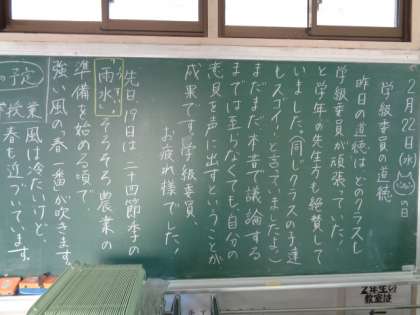 2月22日(水)の日
学級委員の道徳
昨日の道徳は、どのクラスも
学級委員が頑張っていた!
と学年の先生方も絶賛して
いました。(同じクラスの子達
もスゴイ!と言っていましたよ。)
まだまだ本音で議論する
までは至らなくても、自分の
意見を声に出すということが
成果です。学級委員、
お疲れ様でした!
先日、19日は、二十四節季の
うすい
「雨水」そろそろ農業の
準備を始める頃で
強い風の「春一番」が吹きます。
風は冷たいけど、
春も近づいています。
予定
授業
2年生の
教室は